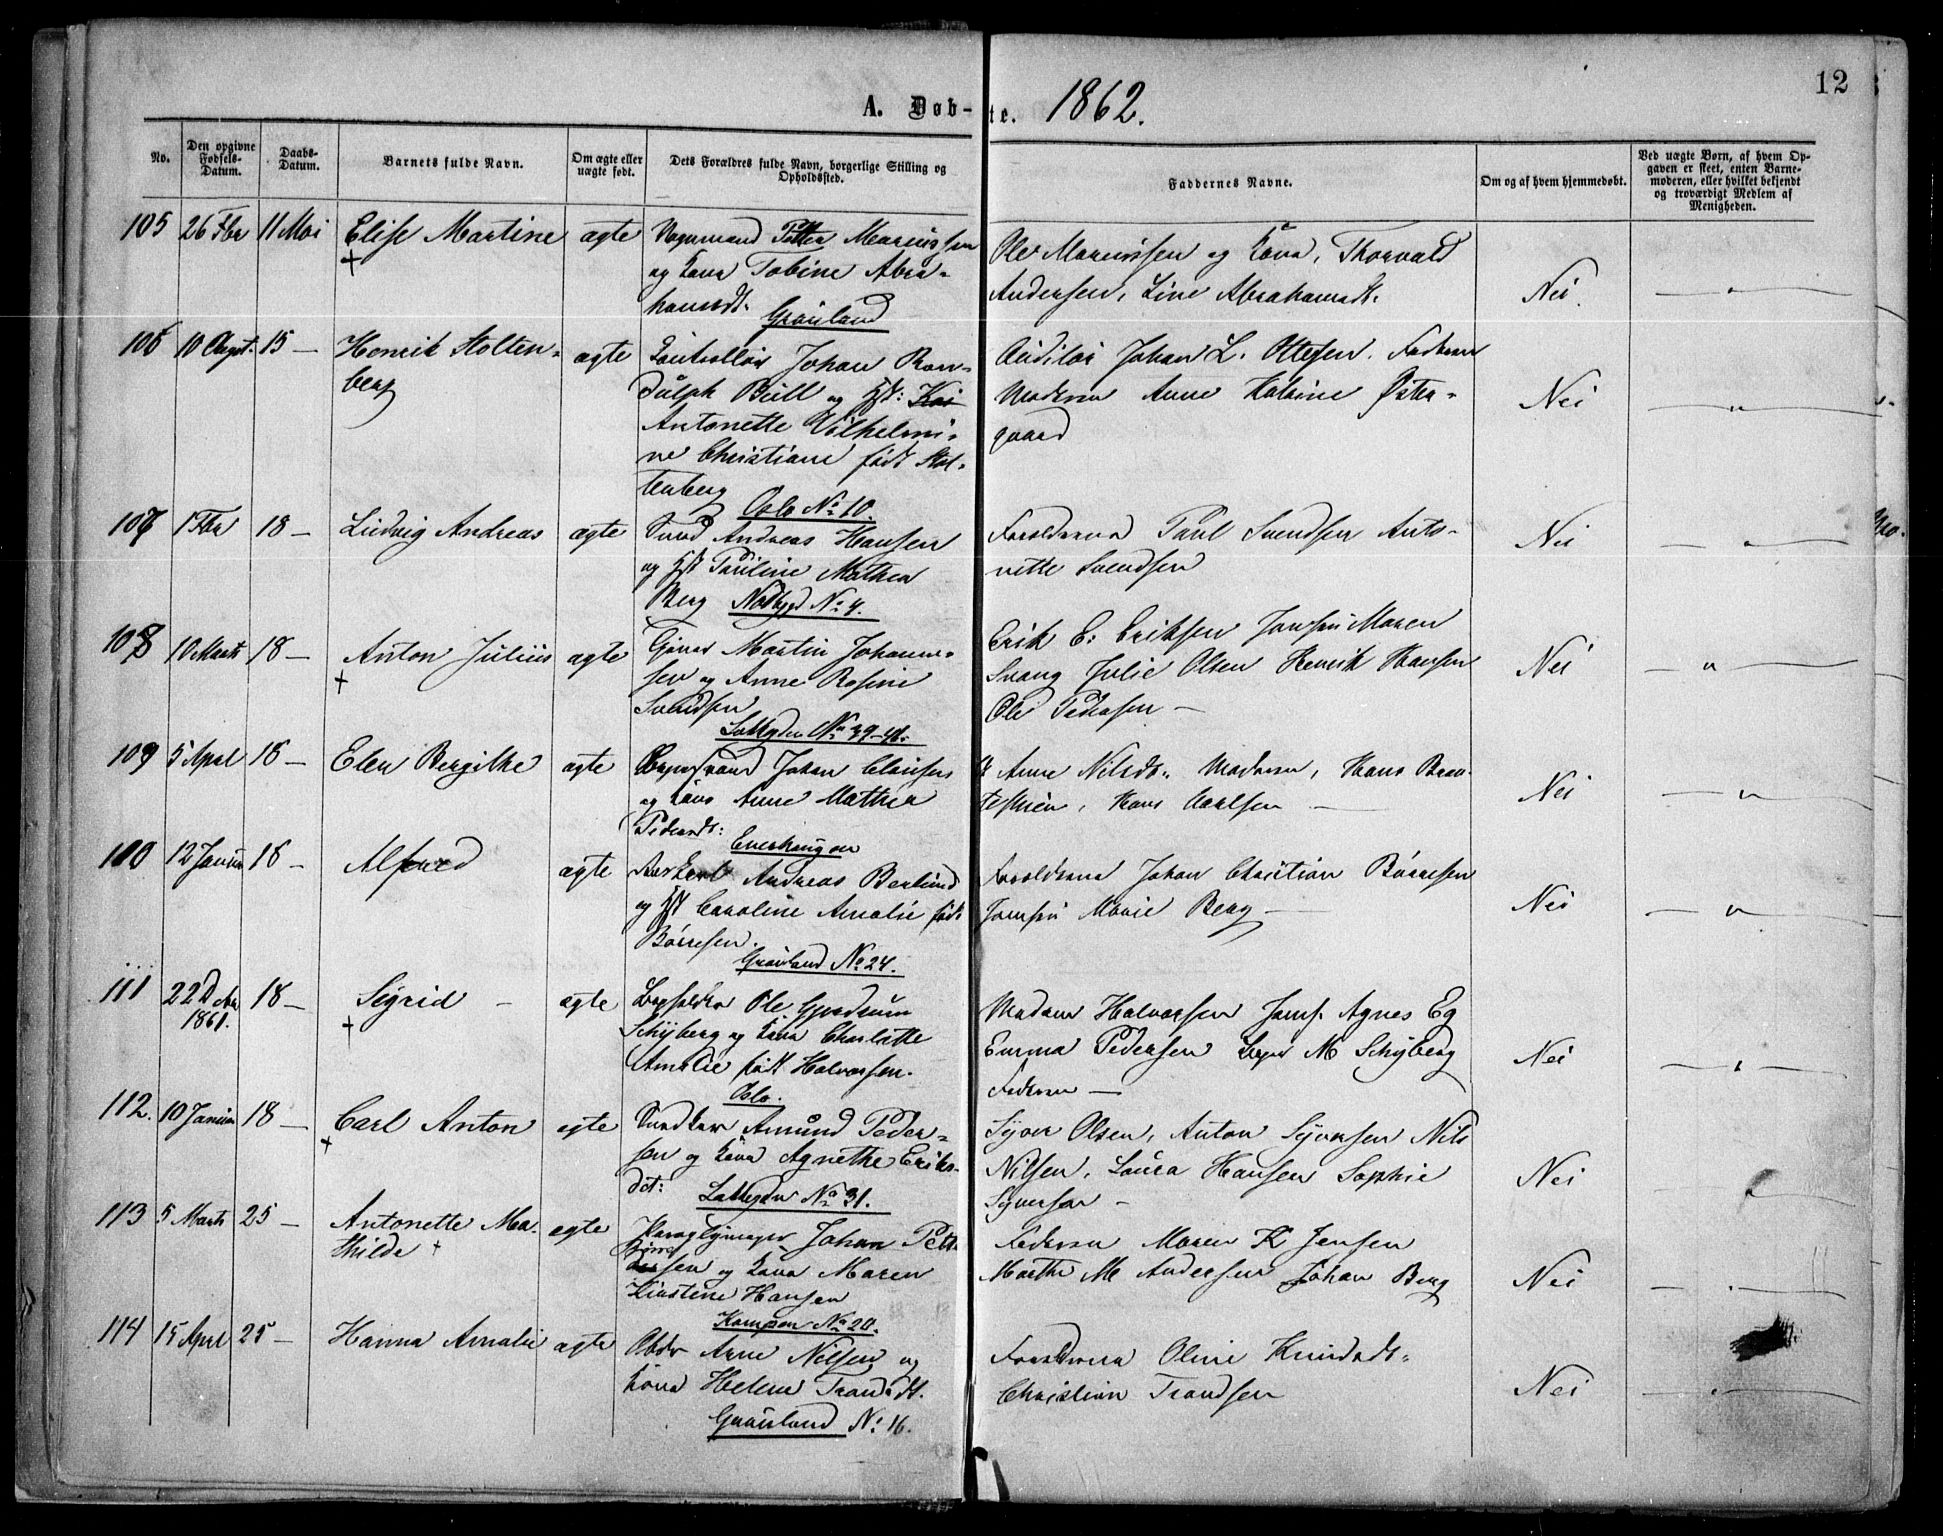 12
A. Døb-te. 1862.
No.
Den opgivne Fødsels-Datum.
Daabs-Datum.
Barnets fulde Navn.
Om ægte eller uægte født.
Dets Forældres fulde Navn, borgerlige Stilling og Opholdssted.
Faddernes Navne.
Om og af hvem hjemmedøbt.
Ved uægte Børn, af hvem Opgaven er skeet, enten Barnemoderen, eller hvilket bekjendt og troværdigt Medlem af Menigheden.
105 26 Fbr 11 Mai Elise Martine ægte Petter Mariussen
og Kone Tobine Abra-
hamsdt. Grønland
Ole Mariussen og Kone, Thorvald
Andersen, Line Abrahamsdt.
Nei
106 10 Augst. 15 — Henrik Stolten-
berg
ægte Johan Ran-
dulph Bull og Hst:
Antonette Vilhelmi-
ne Christiane født Stol-
tenberg
Oslo No 10.
Auditør Johan L. Ottesen. Faderen
Moderen Anne Katrine Øster-
gaard
Nei
107 1 Fbr 18 — Ludvig Andreas ægte Andreas Hansen
og Hst Pauline Mathea
Berg No 4.
Forældrene Paul Svendsen Anto-
nette Svendsen
Nei
108 10 Marts 18 — Anton Julius ægte Martin Johann-
sen og Anne Rosine
Svendsen
No 39-41.
Erik E. Eriksen Jomfru Maren
Svang Julie Olsen Henrik Hansen
Ole Pedersen —
Nei
109 5 April 18 — Elen Bergithe ægte Johan Clausen
og Kone Anne Mathea
Pedersdt:
Enerhaugen
Anne Nilsdt. Moderen, Hans
Hans Carlsen —
Nei
110 12 Januar 18 — Alfred ægte Andreas Berlund
og Hst Caroline Amalie født
Børresen.
Grønland No 24.
Forældrene Johan Christian Børresen
Jomfru Marie Berg —
Nei
111 22 Dcbr 1861. 18 — Sigrid — ægte Ole Gjerdrum
Schyberg og Kone Charlotte
Amalie født Halvorsen.
Oslo.
Madam Halvorsen Jomf. Agnes Eg
Emma Pedersen M Schyberg
Faderen —
Nei
112. 10 Januar 18 — Carl Anton ægte Amund Peder-
sen og Kone Agnethe Eriks-
dt:
No 31.
Syver Olsen, Anton Syversen Nils
Nilsen, Laura Hansen Sophie
Syversen —
Nei
113 5 Marts 25 — Antonette Ma-
thilde
ægte Johan Pett
Børresen og Kone Maren
Kirstine Hansen
Kampen No 20.
Faderen Maren K Jensen
Marthe M Andersen Johan Berg
Nei
114 15 April 25 — Hanna Amalie ægte Arne Nilsen og
Kone Helene Trondsdt.
Grønland No 16.
Forældrene Oline Knudsdt.
Christian Trondsen
Nei